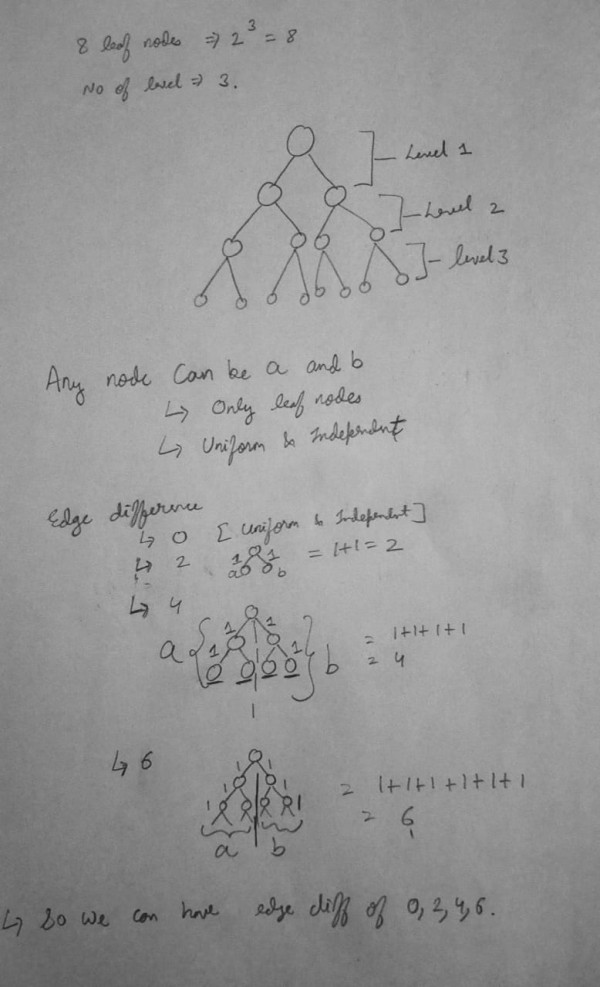 8 leaf nodes ⇒ 2³ = 8
No of level ⇒ 3.
Level 1
Level 2
level 3
Any node Can be a and b
↳ Only leaf nodes
↳ Uniform & Independent
Edge difference
↳ 0 [Uniform & Independent]
↳ 2 1 1 a b = 1+1 = 2
↳ 4
a { 1 1 1 1 } b = 1+1+1+1
= 4
↳ 6 1 1 1 1 1 1 = 1+1+1+1+1+1
a b = 6
↳ So we can have edge diff of 0, 2, 4, 6.